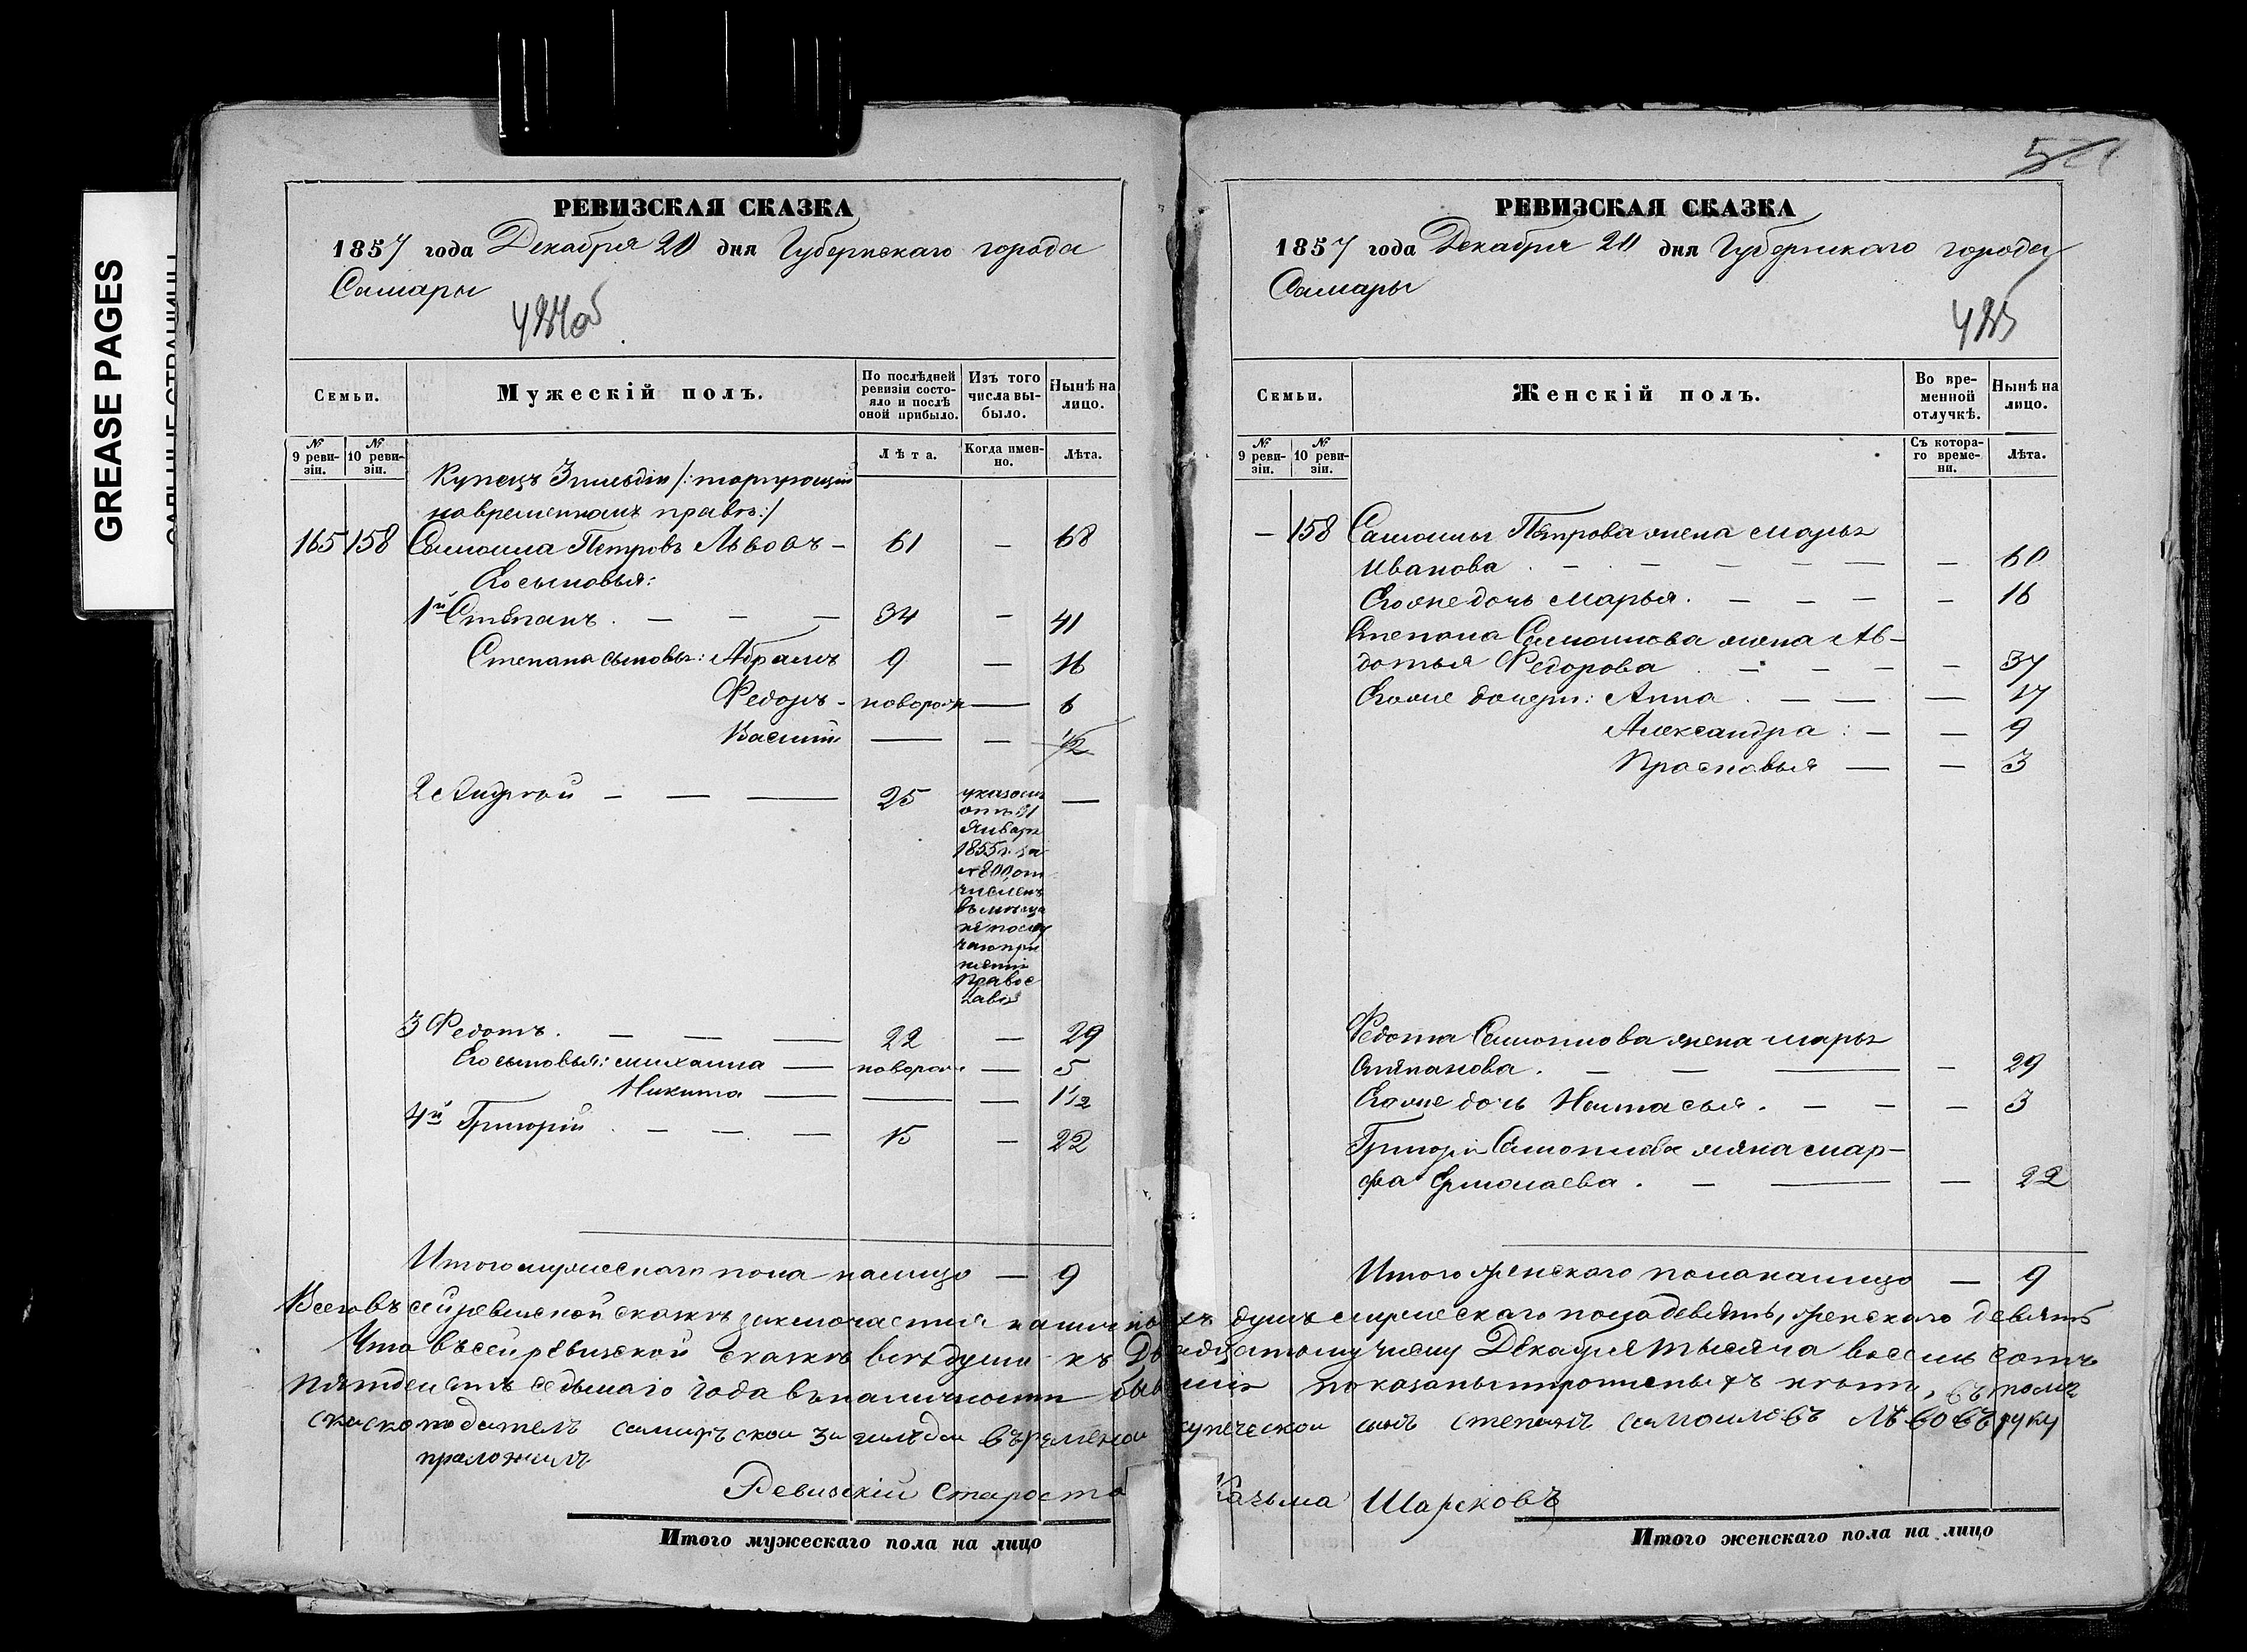 GREASE PAGES
РЕВИЗСКАЯ СКАЗКА
1857 года Декабря 20 дня Губернскаго города
Самары
Семьи.
Мужескій полъ.
По послѣдней ревизіи состояло и послѣ оной прибыло.
Изъ того числа выбыло.
Нынѣ на лицо.
№ 9 ревизіи.
№ 10 ревизіи.
Лѣта.
Когда именно.
Лѣта.
Купецъ 3 гильдіи /: торгующій
на временномъ правѣ :/
165 158 Самойла Петровъ Львовъ — 61 — 68
Его сыновья:
1й Степанъ . — — — 34 — 41
Степана сыновья: Абрамъ 9 — 16
Федоръ - новорож — 6
Василій — — 1/2
2 Андрей — — — 25 указомъ —
отъ 31
Января
1855 г. за
№ 800, от
численъ
въ мѣща
не по слу
чаю при
нятія
Правос
лавія
3 Федотъ . — — — 22 — 29
Его сыновья: Михаила — новорож — 5
Никита — — — 1 1/2
4й Григорій . — — — 15 — 22
Итого мужескаго пола налицо — 9
РЕВИЗСКАЯ СКАЗКА
1857 года Декабря 20 дня Губернскаго города
Самары
425
Семьи.
Женскій полъ.
Во временной отлучкѣ.
Нынѣ на лицо.
№ 9 ревизіи.
№ 10 ревизіи.
Съ котораго времени.
Лѣта.
— 158 Самойлы Петрова жена Марья
Иванова . — — — — — — 60
Его же дочь Марья . — — — — 16
Степана Самойлова жена Ав-
дотья Федорова . — — — — 37
Его же дочери: Анна . — — — 17
Александра : — — 9
Прасковья — — 3
Федота Самойлова жена Марья
Степанова . — — — — 29
Его же дочь Настасья . — — — 3
Григорія Самойлова жена Мар-
фа Ермолаева . — — — 22
Итого женскаго пола налицо — 9
Всего въ сей ревизской сказкѣ заключается наличныхъ душъ мужескаго пола девять, женскаго девять
Что въ сей ревизской сказкѣ всѣ души къ Двадцатому числу Декабря тысяча восемь сотъ
пятдесятъ седьмаго года въ наличности бывшія показаны и пропшеныхъ нѣтъ, въ томъ
скаскоподатель самарской 3й гильдіи временой купеческой сынъ степанъ самоиловъ Львовъ руку
приложилъ
Ревизскій Староста Казьма Шарековъ
Итого мужескаго пола на лицо
Итого женскаго пола на лицо